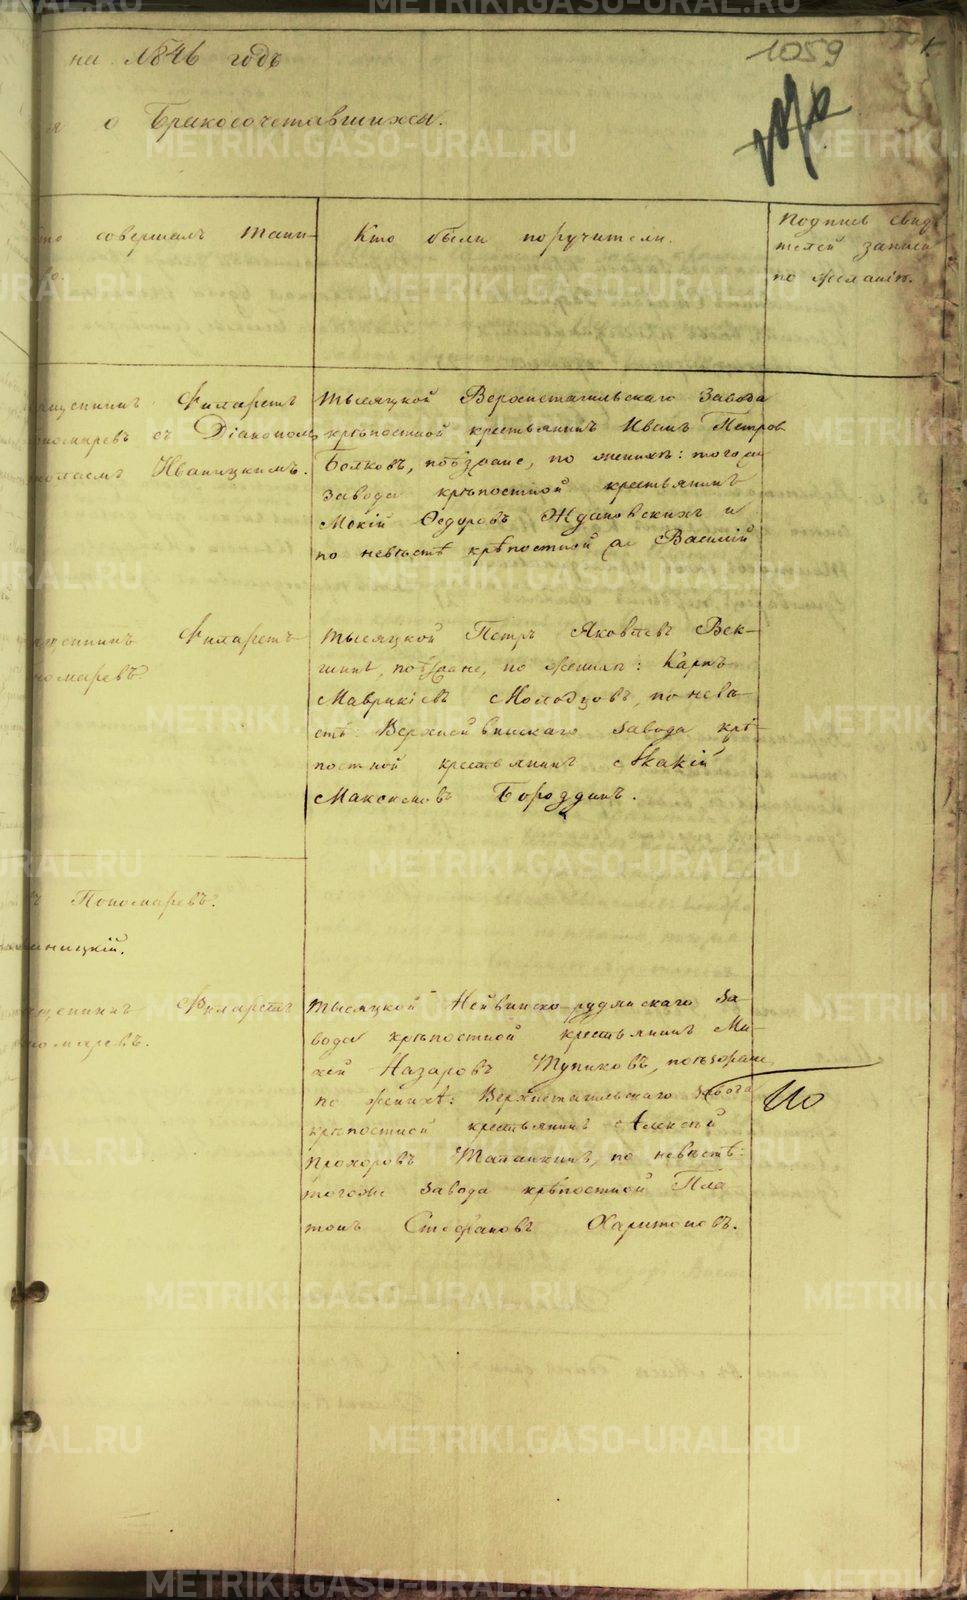 на 1846 годъ
1059
о Бракосочетавшихся.
совершалъ таин-
Кто были поручители.
Подпись свидѣ
телей записи
по желанію.
Филаретъ
съ Діакономъ
Иваницкимъ.
тысяцкой Верхнетагильскаго Завода
крѣпостной крестьянинъ Иванъ Петров
Волковъ, поѣзжане, по женихѣ: того же
завода крѣпостной крестьянинъ
Мокій Ѳедоровъ Ждановскихъ и
по невѣстѣ крѣпостной же Василій
Филаретъ
тысяцкой Петръ Яковлевъ Век-
шинъ, поѣзжане, по женихѣ: Карпъ
Маврикіевъ Молодцовъ, по невѣ-
стѣ: Верхнейвинскаго завода крѣ-
постной крестьянинъ Акакій
Максимовъ Бороздинъ.
Пономаревъ.
Филаретъ
тысяцкой Нейвинско-рудянскаго за-
вода крѣпостной крестьянинъ Ми-
хей Назаровъ Тупиковъ, поѣзжане
по женихѣ: Верхнетагильскаго завода
крѣпостной крестьянинъ Алексей
Прохоровъ Таланкинъ, по невѣстѣ:
тогоже завода крѣпостной Пла
тонъ Стефановъ Харитоновъ.
METRIKI.GASO-URAL.RU